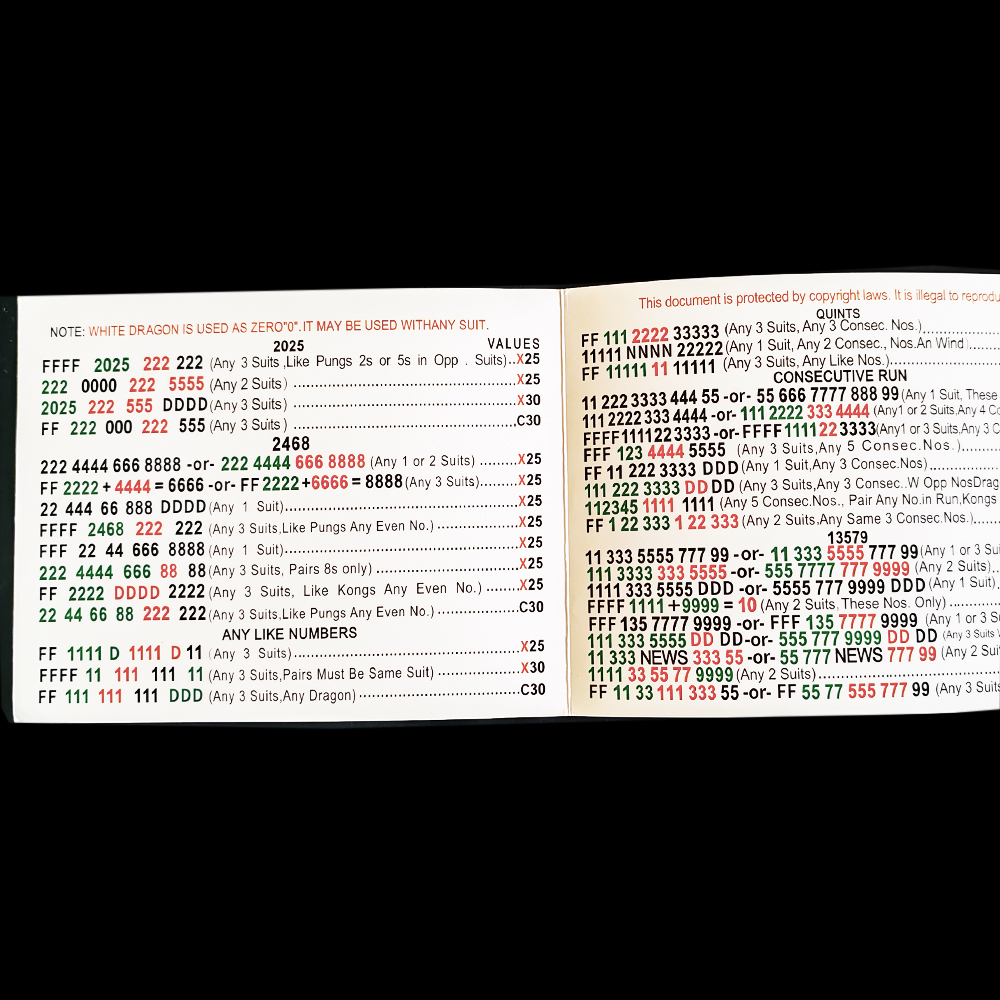 NOTE: WHITE DRAGON IS USED AS ZERO"0".IT MAY BE USED WITHANY SUIT.
2025 VALUES
FFFF 2025 222 222 (Any 3 Suits,Like Pungs 2s or 5s in Opp . Suits)..X25
222 0000 222 5555 (Any 2 Suits) ........X25
2025 222 555 DDDD(Any 3 Suits) ........X30
FF 222 000 222 555 (Any 3 Suits ) ........C30
2468
222 4444 666 8888 -or- 222 4444 666 8888 (Any 1 or 2 Suits) ........X25
FF 2222 + 4444 = 6666 -or- FF 2222+6666 = 8888(Any 3 Suits)........X25
22 444 66 888 DDDD(Any 1 Suit)........X25
FFFF 2468 222 222 (Any 3 Suits,Like Pungs Any Even No.) ........X25
FFF 22 44 666 8888 (Any 1 Suit)........X25
222 4444 666 88 88 (Any 3 Suits, Pairs 8s only) ........X25
FF 2222 DDDD 2222 (Any 3 Suits, Like Kongs Any Even No.) ........X25
22 44 66 88 222 222 (Any 3 Suits,Like Pungs Any Even No.) ........C30
ANY LIKE NUMBERS
FF 1111 D 1111 D 11 (Any 3 Suits)........X25
FFFF 11 111 111 11 (Any 3 Suits,Pairs Must Be Same Suit) ........X30
FF 111 111 111 DDD (Any 3 Suits,Any Dragon)........C30
This document is protected by copyright laws. It is illegal to
QUINTS
FF 111 2222 33333 (Any 3 Suits, Any 3 Consec. Nos.)........
11111 NNNN 22222 (Any 1 Suit, Any 2 Consec., Nos.An Wind)........
FF 11111 11 11111 (Any 3 Suits, Any Like Nos.)........
CONSECUTIVE RUN
11 222 3333 444 55 -or- 55 666 7777 888 99 (Any 1 Suit, These
111 2222 333 4444 -or- 111 2222 333 4444 (Any1 or 2 Suits,Any 4
FFFF1111223333 -or- FFFF1111223333(Any1 or 3 Suits,Any 3
FFF 123 4444 5555 (Any 3 Suits,Any 5 Consec.Nos.)........
FF 11 222 3333 DDD (Any 1 Suit,Any 3 Consec.Nos)........
111 222 3333 DD DD (Any 3 Suits,Any 3 Consec..W Opp NosDrag
112345 1111 1111 (Any 5 Consec.Nos., Pair Any No.in Run,Kongs
FF 1 22 333 1 22 333 (Any 2 Suits,Any Same 3 Consec.Nos.)........
13579
11 333 5555 777 99 -or- 11 333 5555 777 99(Any 1 or 3
111 3333 333 5555 -or- 555 7777 777 9999 (Any 2 Suits)..
1111 333 5555 DDD -or- 5555 777 9999 DDD (Any 1 Suit)
FFFF 1111 +9999 = 10 (Any 2 Suits,These Nos. Only) ........
FFF 135 7777 9999 -or- FFF 135 7777 9999 (Any 1 or 3
111 333 5555 DD DD-or- 555 777 9999 DD DD (Any 3 Suits
11 333 NEWS 333 55 -or- 55 777 NEWS 777 99 (Any 2
1111 33 55 77 9999 (Any 2 Suits)........
FF 11 33 111 333 55 -or- FF 55 77 555 777 99 (Any 3